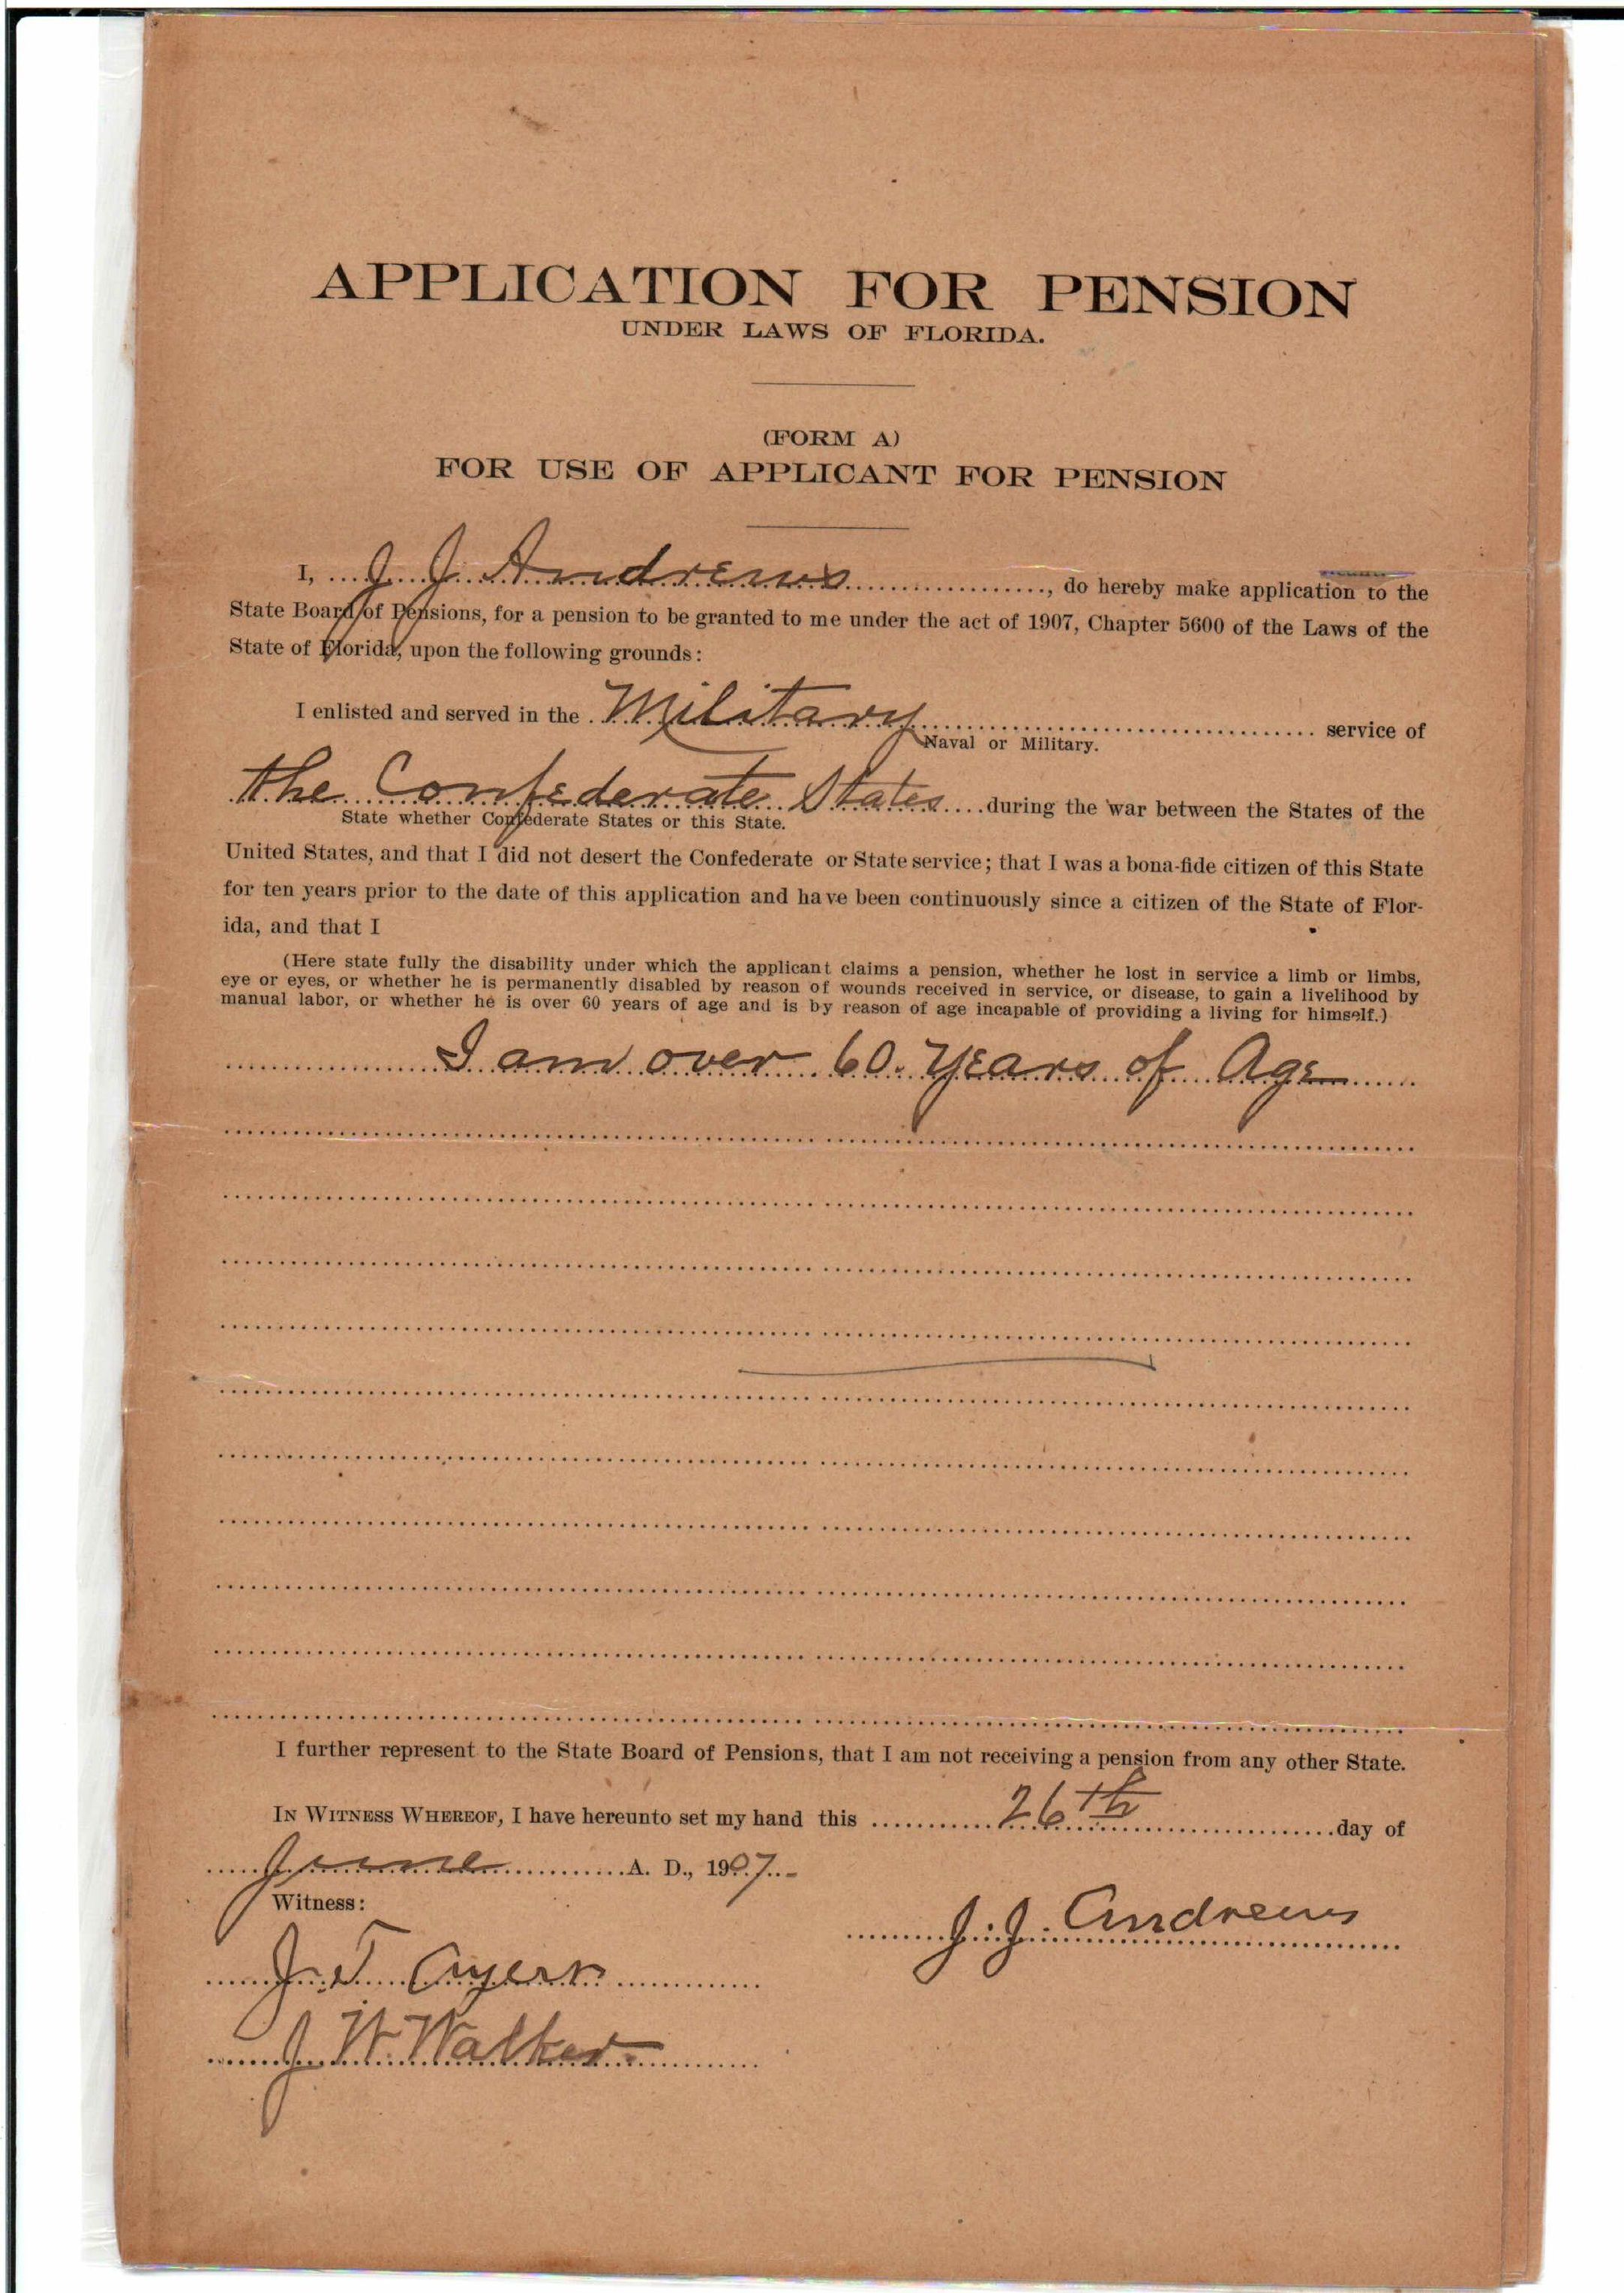 APPLICATION FOR PENSION
UNDER LAWS OF FLORIDA.
(FORM A)
FOR USE OF APPLICANT FOR PENSION
I, J J Andrews, do hereby make application to the
State Board of Pensions, for a pension to be granted to me under the act of 1907, Chapter 5600 of the Laws of the
State of Florida, upon the following grounds:
I enlisted and served in the Military service of
Naval or Military.
the Confederate States during the war between the States of the
State whether Confederate States or this State.
United States, and that I did not desert the Confederate or State service; that I was a bona-fide citizen of this State
for ten years prior to the date of this application and have been continuously since a citizen of the State of Flor-
ida, and that I
(Here state fully the disability under which the applicant claims a pension, whether he lost in service a limb or limbs,
eye or eyes, or whether he is permanently disabled by reason of wounds received in service, or disease, to gain a livelihood by
manual labor, or whether he is over 60 years of age and is by reason of age incapable of providing a living for himself.)
I am over 60 Years of Age
I further represent to the State Board of Pensions, that I am not receiving a pension from any other State.
IN WITNESS WHEREOF, I have hereunto set my hand this 26th day of
June A. D., 1907
Witness:
J. J. Andrews
J. T.
J. W. Walker